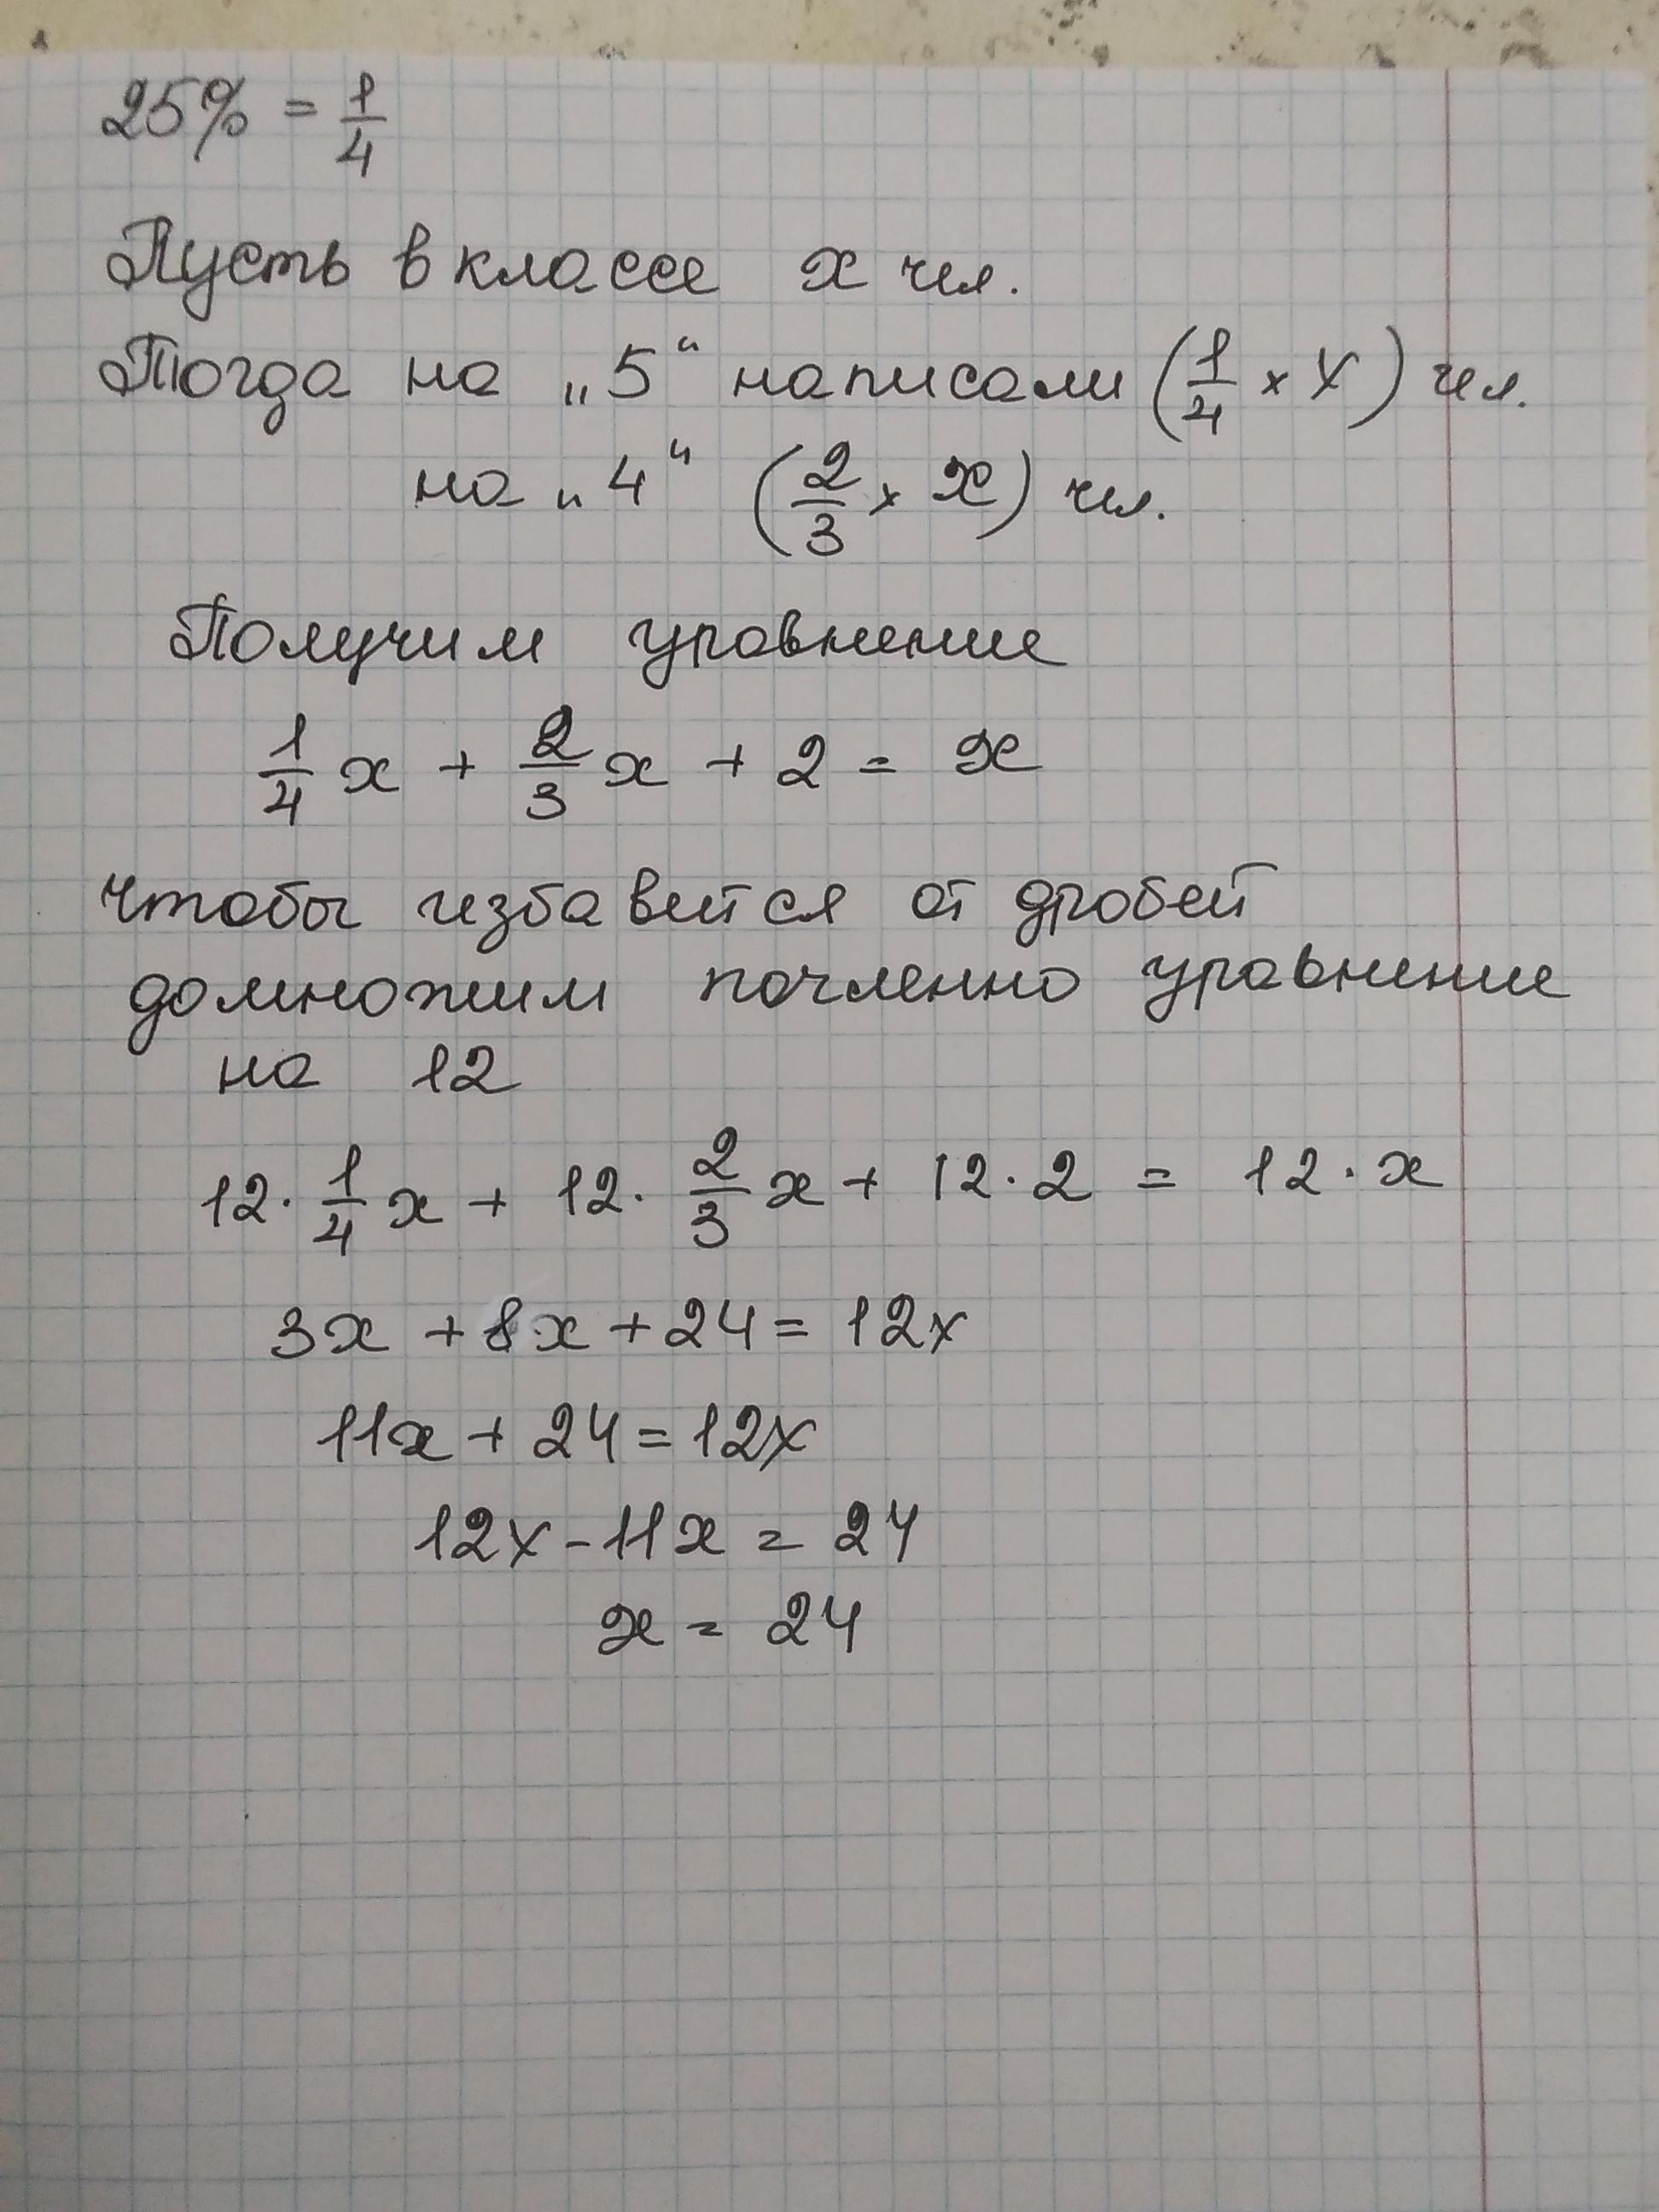 25% = 1/4
Пусть в классе x чел.
Тогда на „5“ написали (1/4 × x) чел.
на „4“ (2/3 × x) чел.
Получим уравнение
1/4 x + 2/3 x + 2 = x
Чтобы избавится от дробей
домножим почленно уравнение
на 12
12 · 1/4 x + 12 · 2/3 x + 12 · 2 = 12 · x
3x + 8x + 24 = 12x
11x + 24 = 12x
12x - 11x = 24
x = 24